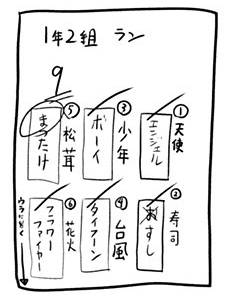 1年2組 ラン
9
① 天使
エンジェル
③ 少年
ボーイ
⑤ 松茸
まつたけ
② 寿司
おすし
④ 台風
タイフーン
⑥ 花火
フラワー
ファイヤー
ウラに